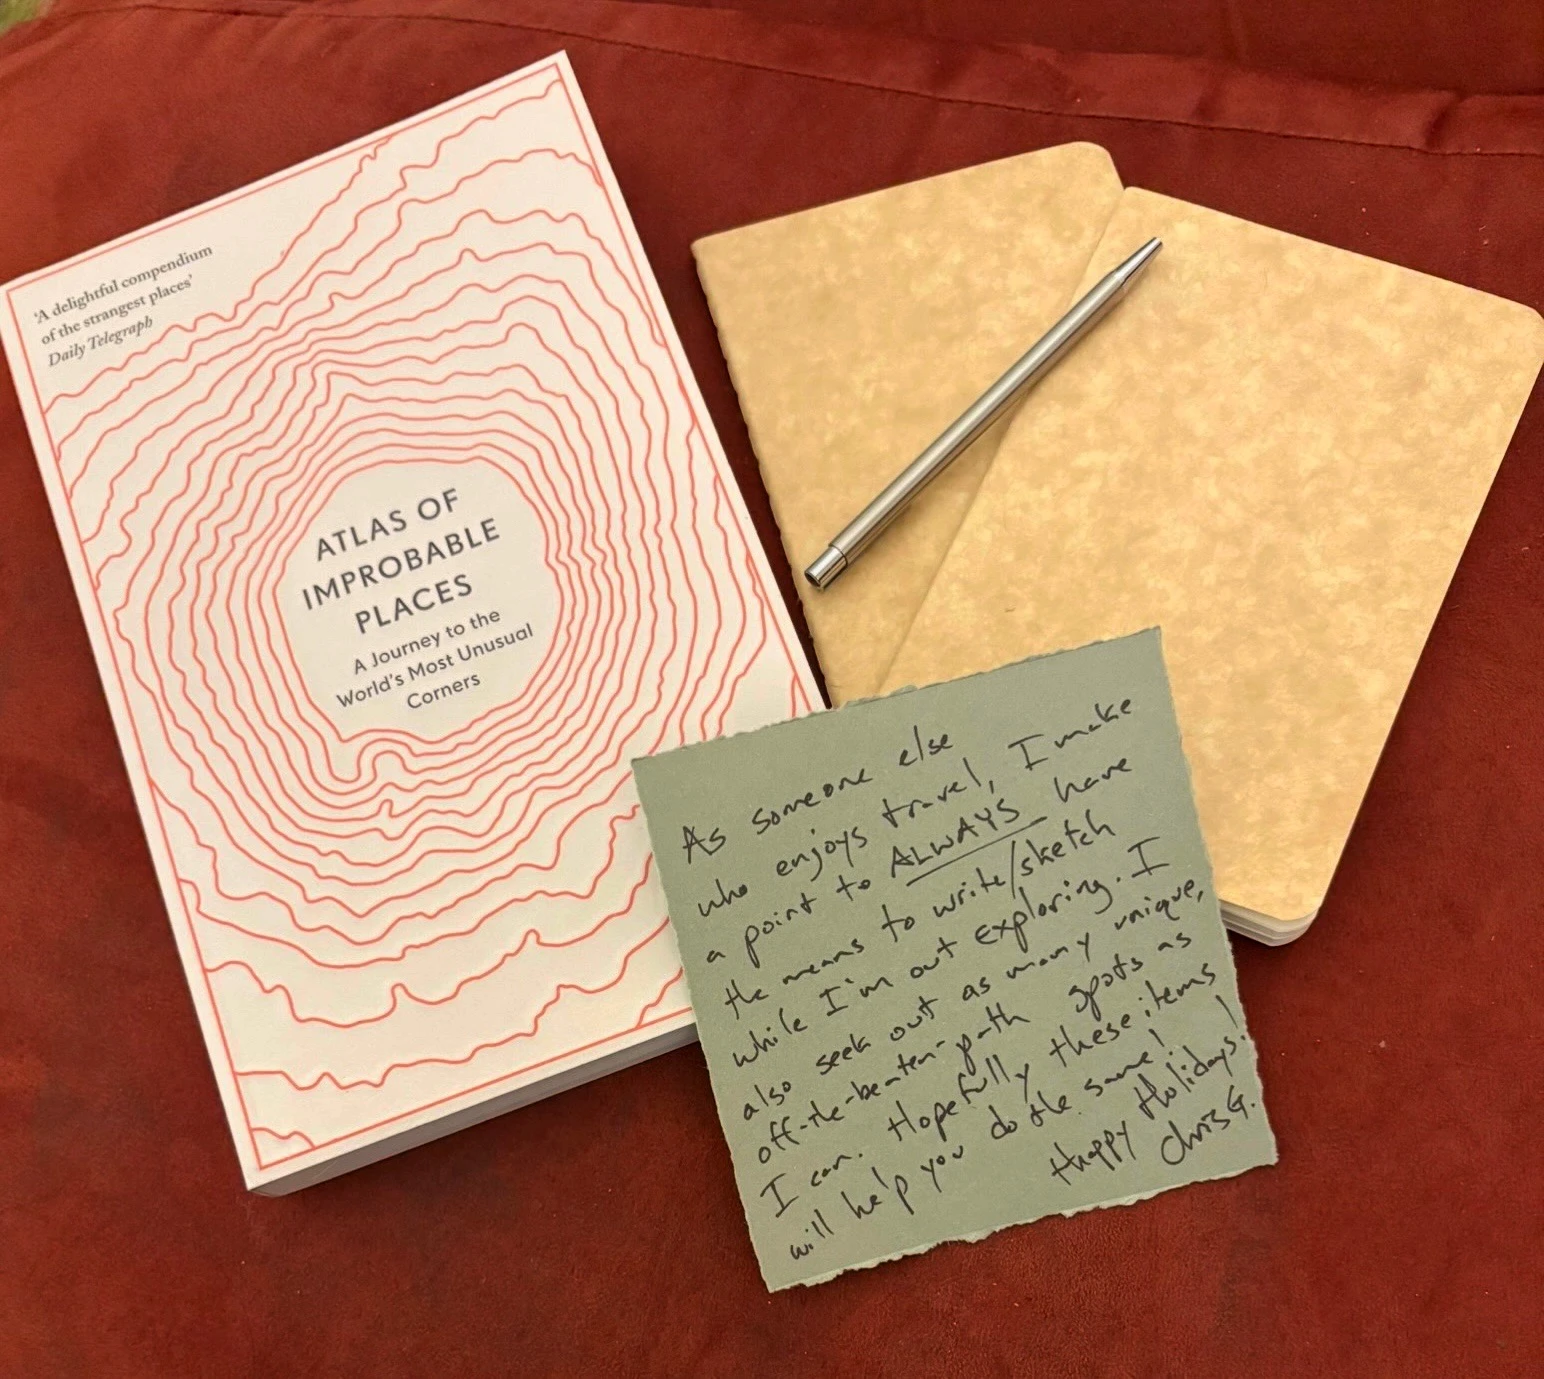 'A delightful compendium
of the strangest places'
Daily Telegraph
ATLAS OF
IMPROBABLE
PLACES
A Journey to the
World's Most Unusual
Corners
As someone else
who enjoys travel, I make
a point to ALWAYS have
the means to write/sketch
while I'm out exploring. I
also seek out as many unique,
off-the-beaten-path spots as
I can. Hopefully these items
will help you do the same!
Happy Holidays!
Chris G.